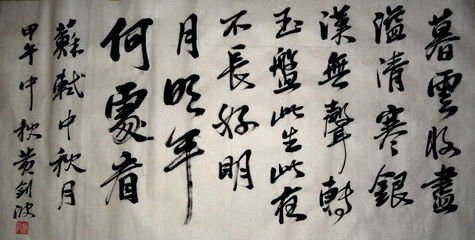 暮雲收盡
溢清寒銀
漢無聲轉
玉盤此生此夜
不長好明
月明年
何處看
蘇軾中秋月
甲午中秋黄劍波